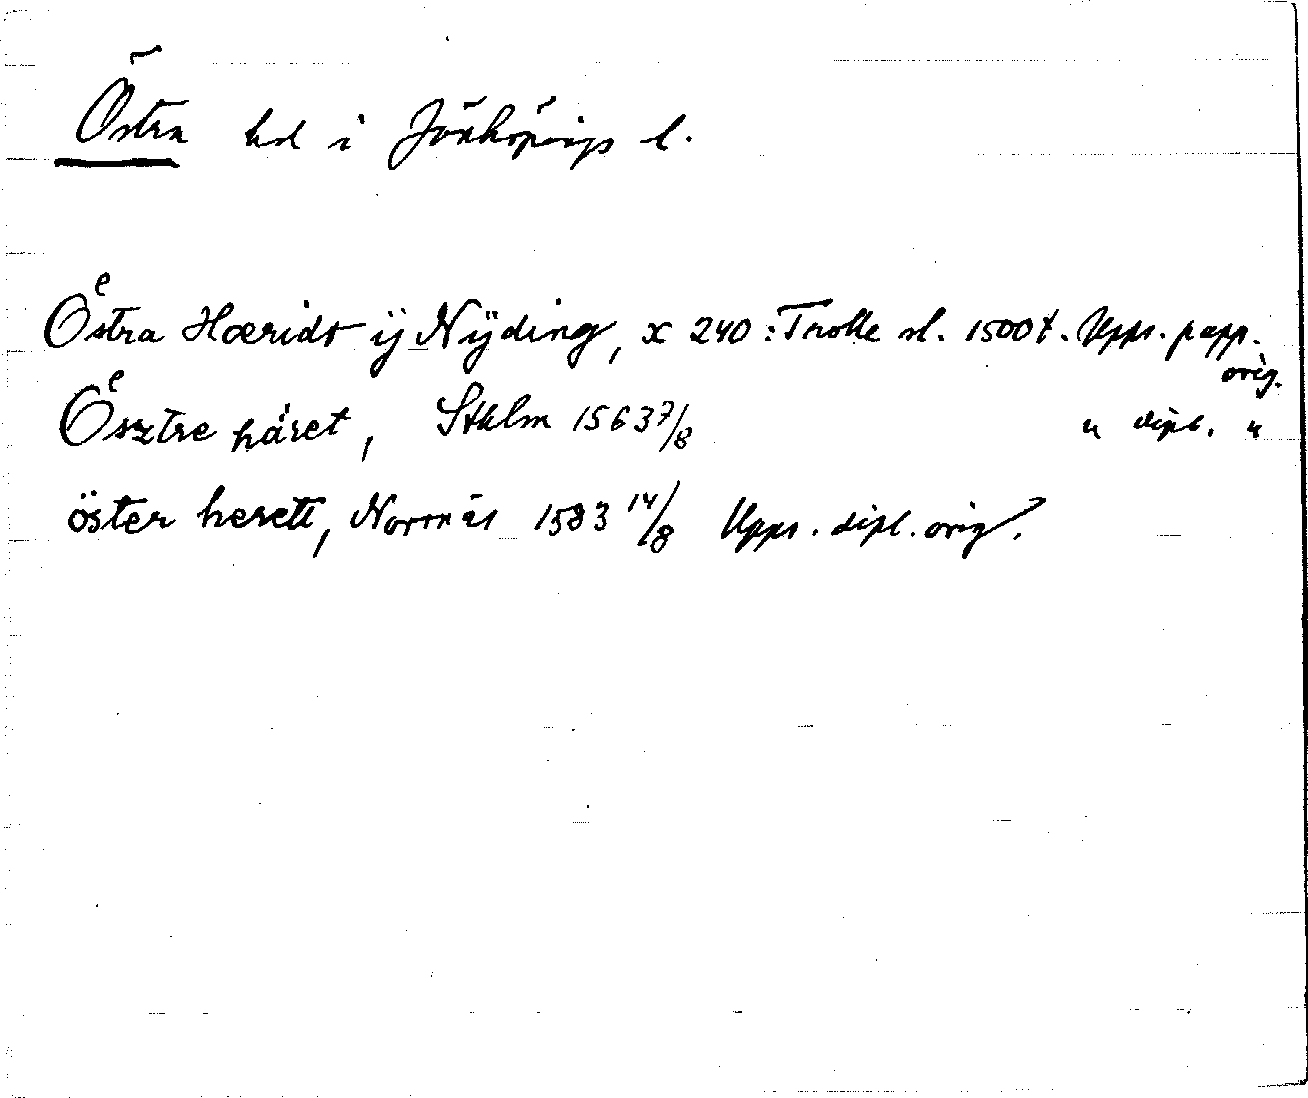 Östra hd i Jönköpings l.
Oͤstra Hæridt ÿ Nÿding, x 240: Trolle sl. 1500 t. Upps. papp. orig.
Oͤsztre håret, Sthlm 1563 7/8 " dipl. "
öster herett, Norrnäs 1583 14/8 Upps. dipl. orig.